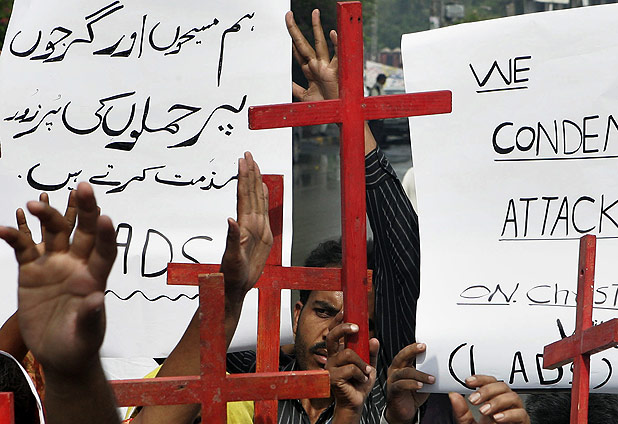 ہم مسیحوں اور گرجوں
پر حملوں کی پرزور
مذمت کرتے ہیں.
LADS
WE
CONDEN
ATTACK
ON. Christ
(LADS)